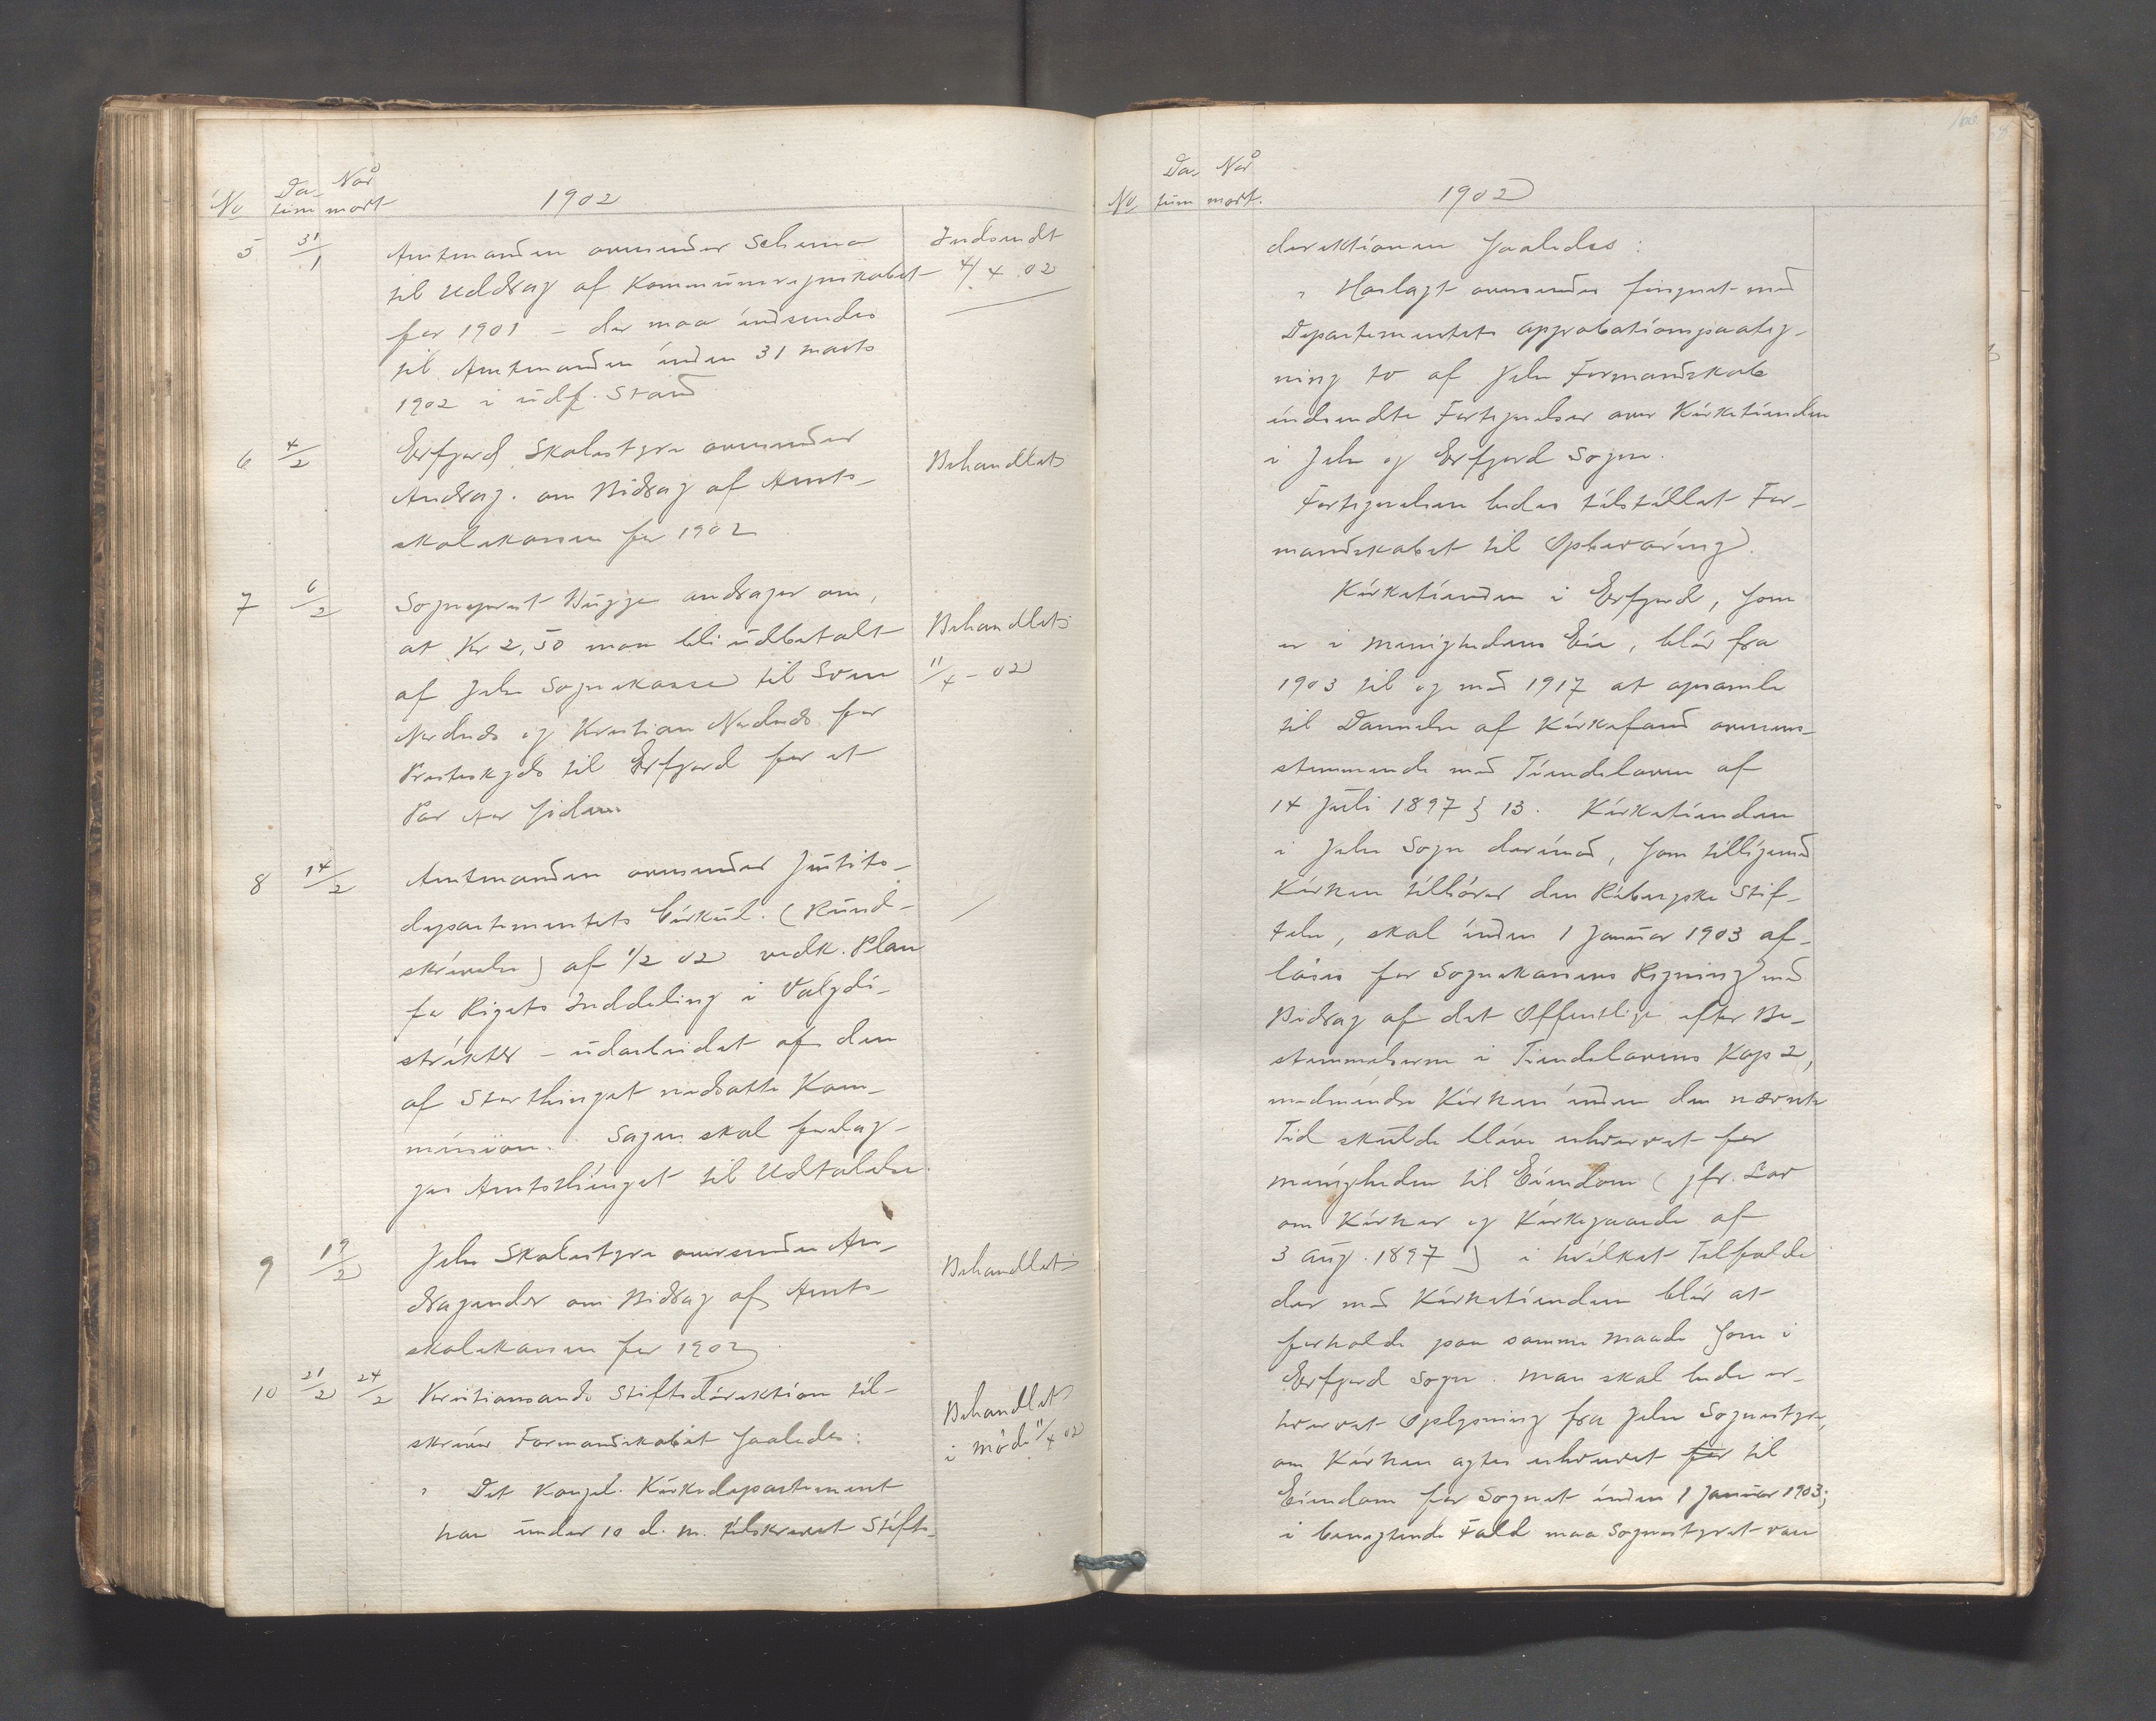 No Da- Naar
tum modt. 1902
5 31/1 Amtmanden oversender Schema
til Uddrag af Kommuneregnskabet
for 1901 – der maa indsendes
til Amtmanden inden 31 marts
1902 i udf. Stand
Indsendt
4/4 02
6 4/2 Erfjord Skolestyre oversender
Andrag. om Bidrag af Amts-
skolekassen for 1902
Behandlet
7 6/2 Sogneprest Bugge andrager om,
at Kr 2,50 maa bli udbetalt
af Jelse Sognekasse til Sven
og Kristian for
Presteskyds til Erfjord for et
Par Aar siden
Behandlet
11/4 – 02
8 14/2 Amtmanden oversender Justits-
departementets Cirkul. (Rund-
skrivelse) af 1/2 02 vedk. Plan
for Rigets Inddeling i Valgdi-
strikter – udarbeidet af den
af Storthinget nedsatte Kom-
mission. Sagen skal forelæg-
ges Amtsthinget til Udtalelse.
9 19/2 Jelse Skolestyre oversender An-
dragender om Bidrag af Amts-
skolekassen for 1902
Behandlet
10 21/2 24/2 Kristiansands Stiftsdirektion til-
skriver Formandskabet saaledes:
" Det kongel. Kirkedepartement
har under 10 d. m. tilskrevet Stifts-
Behandlet
i möde 11/4 02
No Da- Naar
tum modt. 1902
direktionen saaledes:
" Hoslagt oversendes forsynet med
Departementets approbationspaateg-
ning to af Jelse Formandskab
indsendte Fortegnelser over Kirketienden
i Jelse og Erfjord Sogne.
Fortegnelsen bedes tilstillet For-
mandskabet til Opbevaring.
Kirketienden i Erfjord, som
er i menighedens Eie, blir fra
1903 til og med 1917 at opsamle
til Dannelse af Kirkefond overens-
stemmende med Tiendeloven af
14 Juli 1897 § 13. Kirketienden
i Jelse Sogn derimod, som tilligemed
Kirken tilhörer den Ribergske Stif-
telse, skal inden 1 Januar 1903 af-
löses for Sognekassens Regning med
Bidrag af det Offentlige efter Be-
stemmelserne i Tiendelovens Kap 2,
medmindre Kirken inden den nævnte
Tid skulde blive erhvervet for
menigheden til Eiendom (jfr. Lov
om Kirker og Kirkegaarde af
3 Aug. 1897) i hvilket Tilfælde
der med Kirketienden blir at
forholde paa samme Maade som i
Erfjord Sogn. Man skal bede er-
hvervet Oplysning fra Jelse Sognestyre,
om Kirken agtes erhvervet for til
Eiendom for Sognet inden 1 Januar 1903;
i benegtende Fald maa Sognestyret være